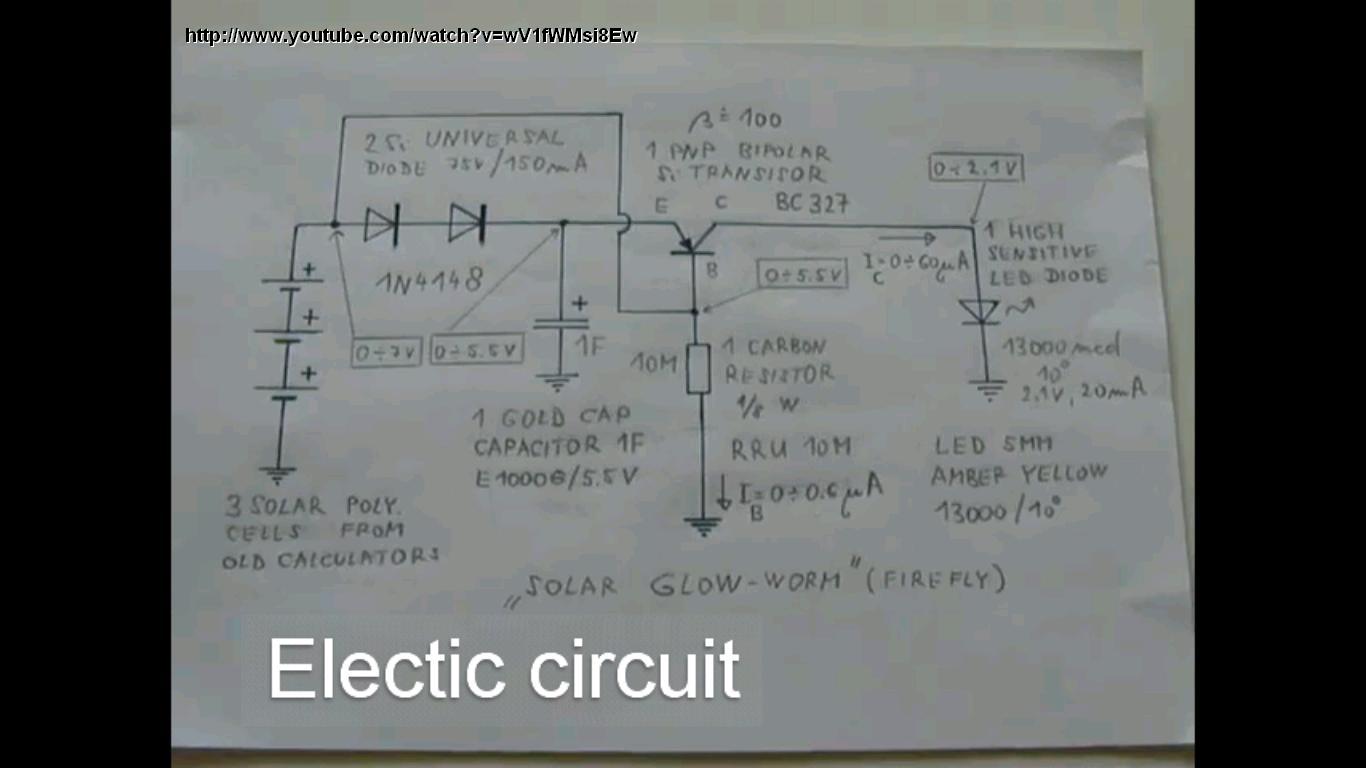 http://www.youtube.com/watch?v=wV1fWMsi8Ew
β≐100
2 Si UNIVERSAL
DIODE 75V/150mA
1 PNP BIPOLAR
Si TRANSISOR
E C BC 327
0÷2.1V
1 HIGH
SENSITIVE
LED DIODE
+
1N4148
B
0÷5.5V
I=0÷60μA
C
+
+
+
0÷7V
0÷5.5V
1F
10M
1 CARBON
RESISTOR
1/8 W
13000 mcd
10°
2.1V, 20mA
1 GOLD CAP
CAPACITOR 1F
E1000G/5.5V
RRU 10M
I=0÷0.6μA
B
LED 5MM
AMBER YELLOW
13000/10°
3 SOLAR POLY.
CELLS FROM
OLD CALCULATORS
„SOLAR GLOW-WORM" (FIREFLY)
Electic circuit